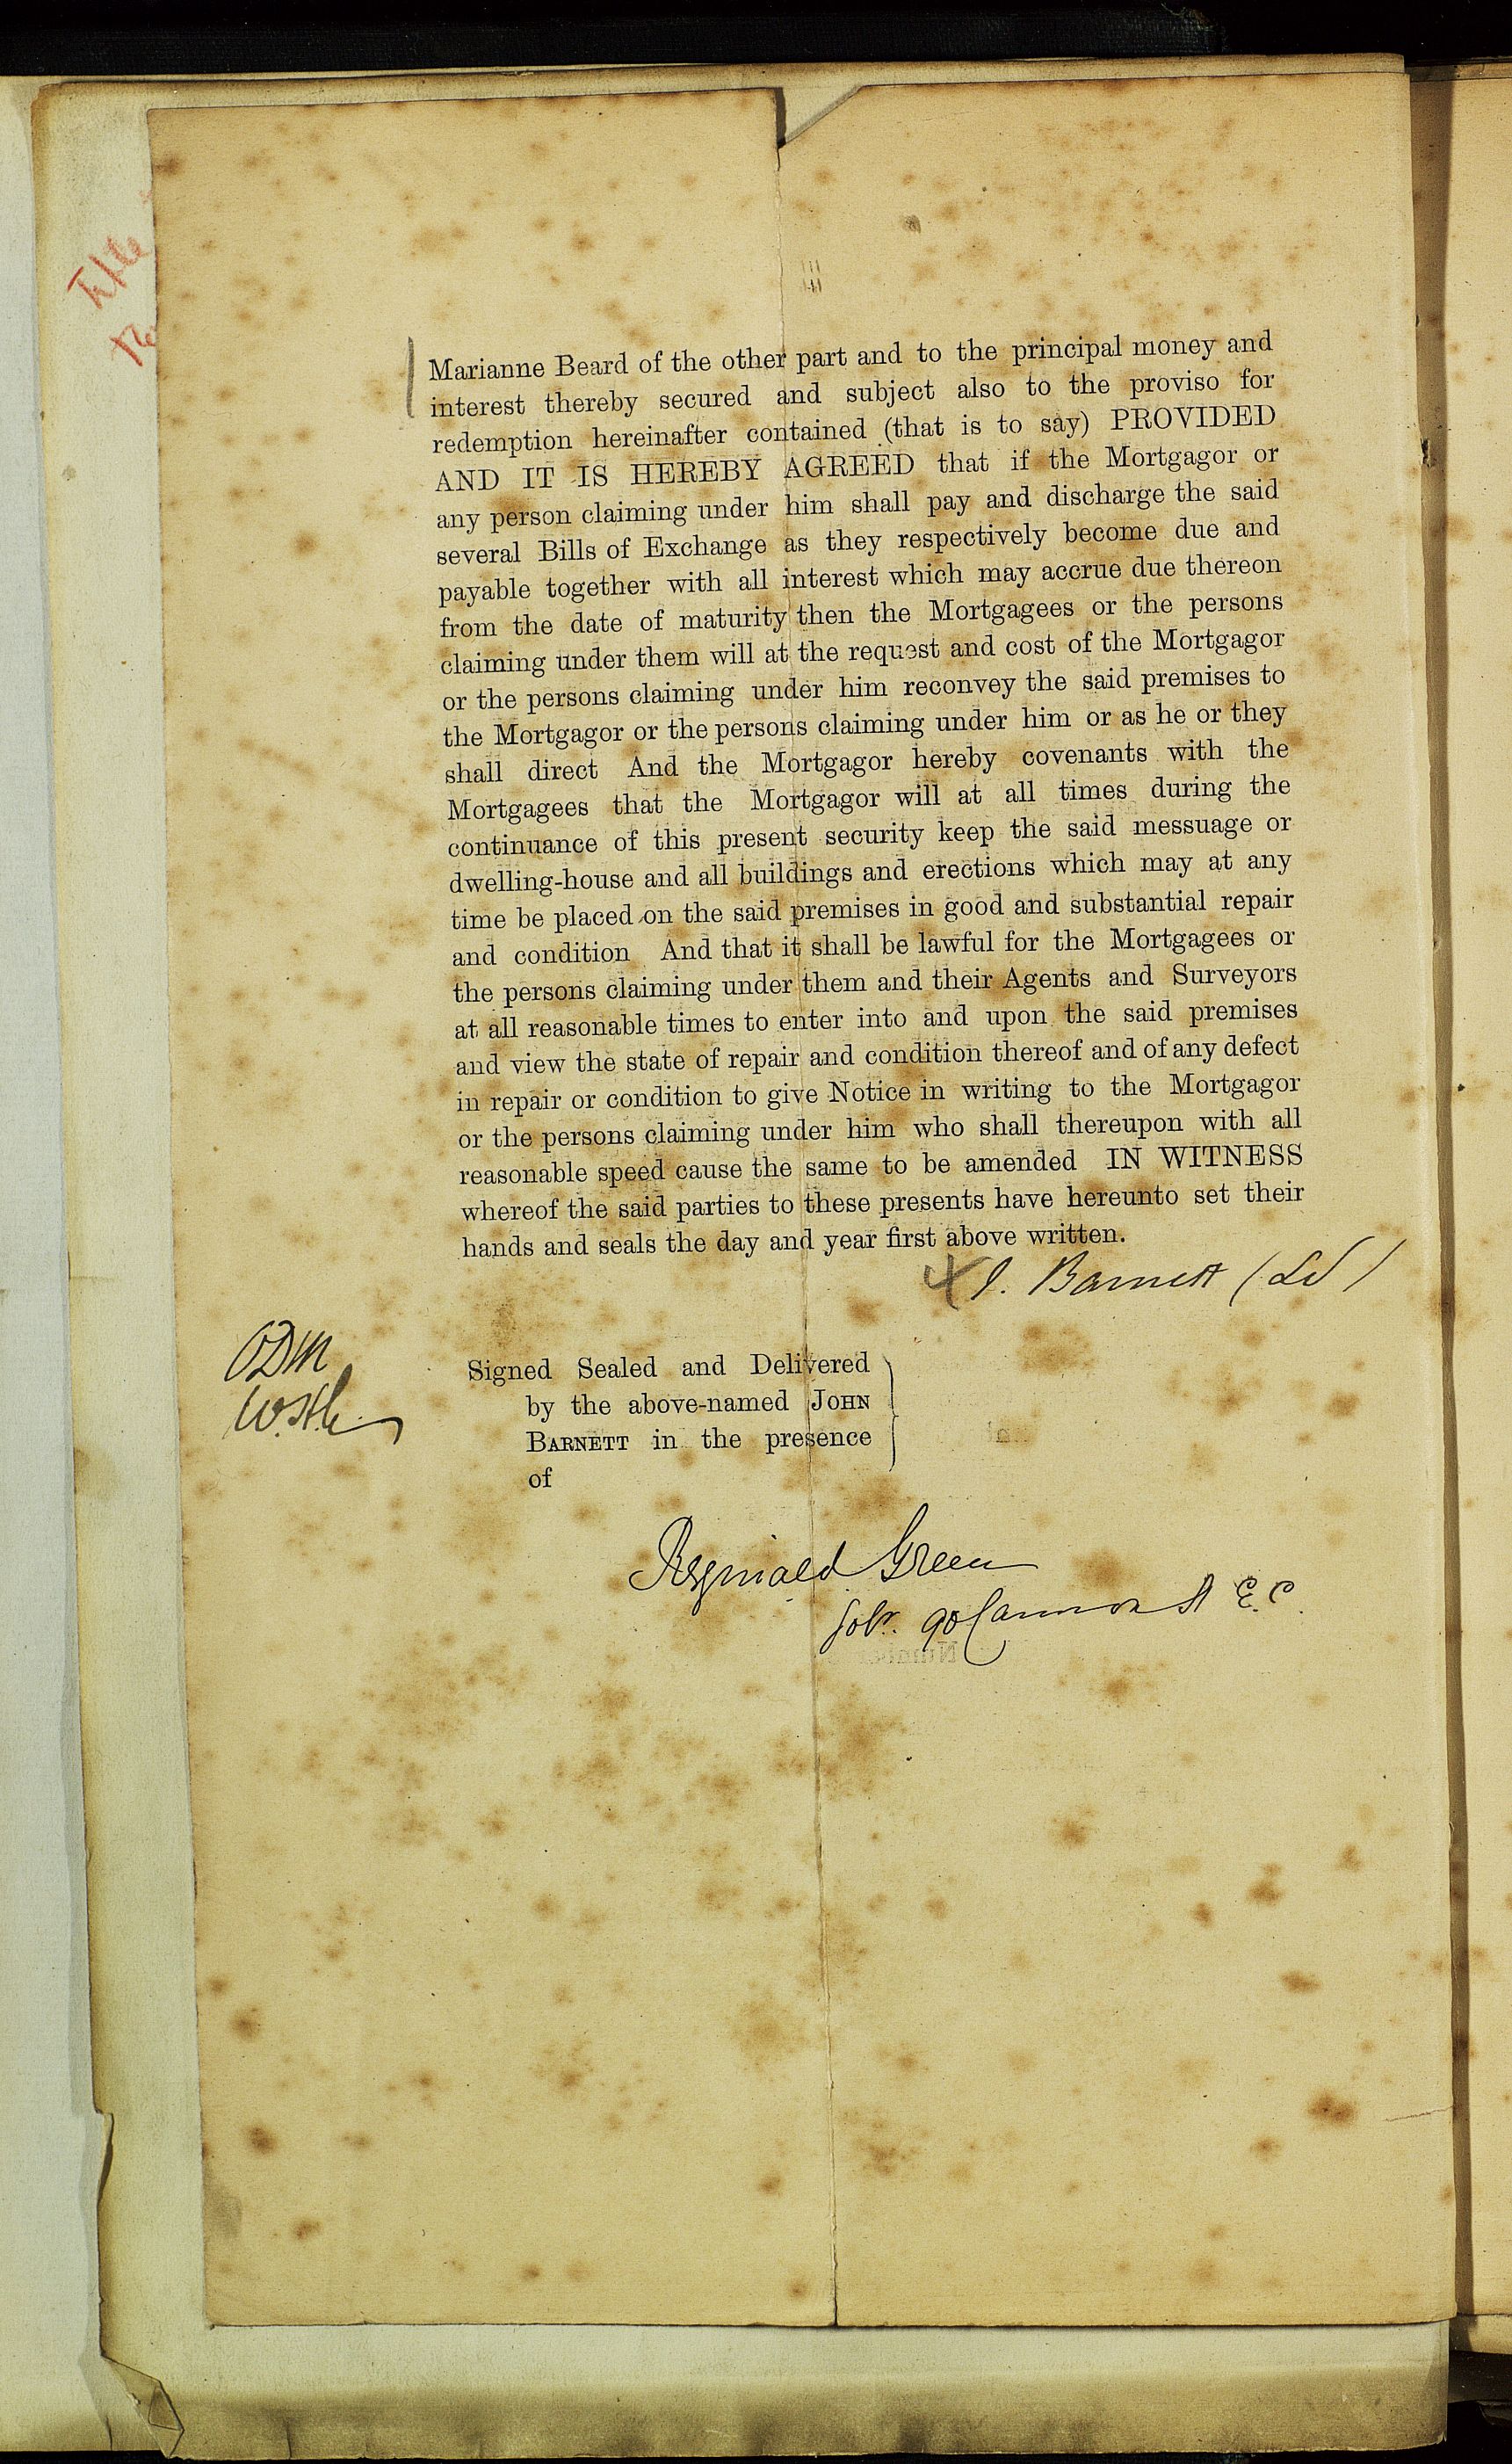 Marianne Beard of the other part and to the principal money and
interest thereby secured and subject also to the proviso for
redemption hereinafter contained (that is to say) PROVIDED
AND IT IS HEREBY AGREED that if the Mortgagor or
any person claiming under him shall pay and discharge the said
several Bills of Exchange as they respectively become due and
payable together with all interest which may accrue due thereon
from the date of maturity then the Mortgagees or the persons
claiming under them will at the request and cost of the Mortgagor
or the persons claiming under him reconvey the said premises to
the Mortgagor or the persons claiming under him or as he or they
shall direct And the Mortgagor hereby covenants with the
Mortgagees that the Mortgagor will at all times during the
continuance of this present security keep the said messuage or
dwelling-house and all buildings and erections which may at any
time be placed on the said premises in good and substantial repair
and condition And that it shall be lawful for the Mortgagees or
the persons claiming under them and their Agents and Surveyors
at all reasonable times to enter into and upon the said premises
and view the state of repair and condition thereof and of any defect
in repair or condition to give Notice in writing to the Mortgagor
or the persons claiming under him who shall thereupon with all
reasonable speed cause the same to be amended IN WITNESS
whereof the said parties to these presents have hereunto set their
hands and seals the day and year first above written.
J. Barnett (Ld)
ODM
Signed Sealed and Delivered
by the above-named JOHN
BARNETT in the presence
of
Reginald Green
Solr. 90 Cannon St E.C.